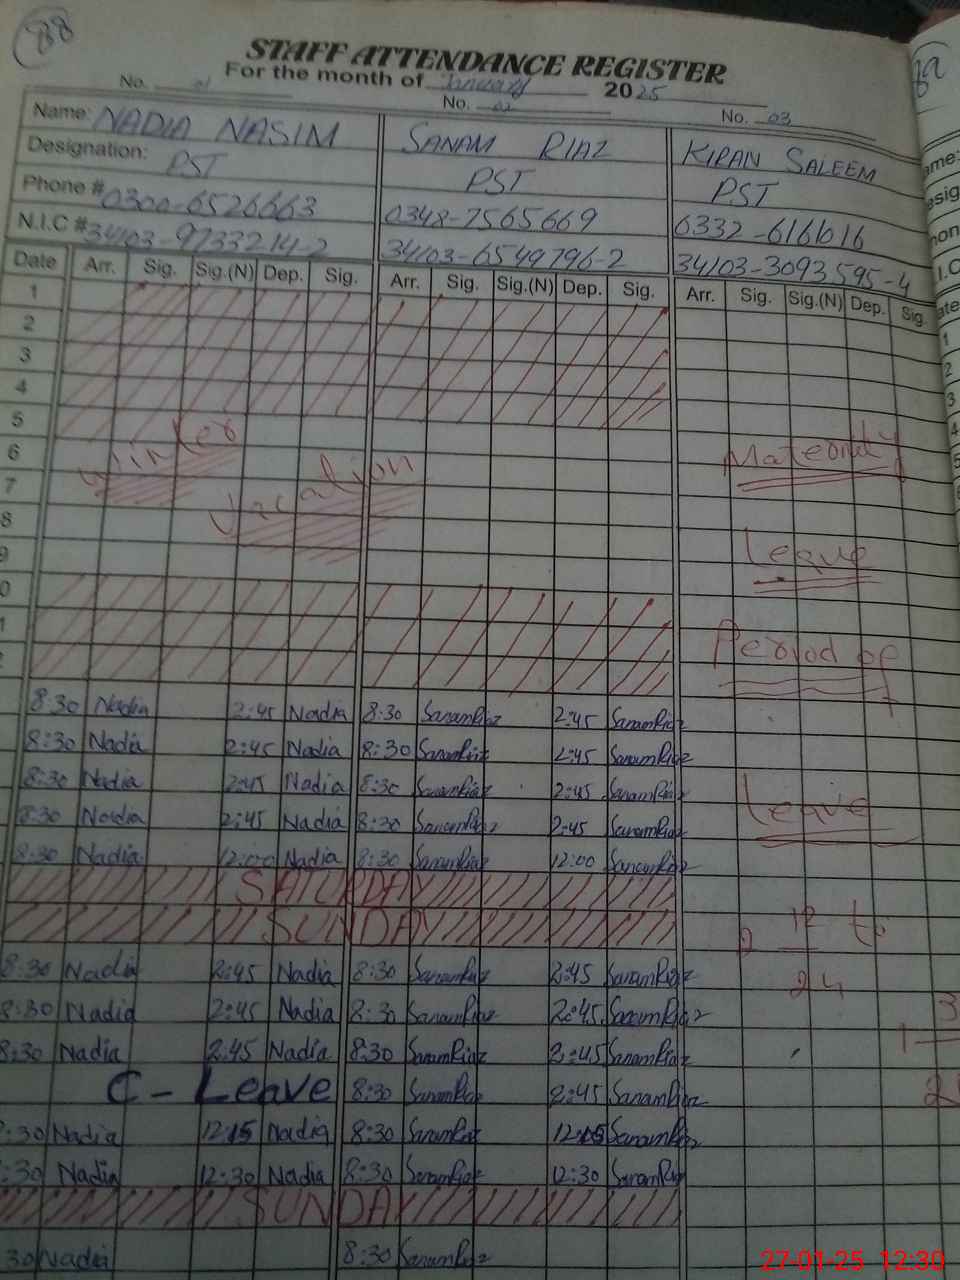 88
STAFF ATTENDANCE REGISTER
For the month of January 2025
No. 01 No. 02 No. 03
Name: NADIA NASIM SANAM RIAZ KIRAN SALEEM
Designation: PST PST PST
Phone # 0300-6526663 0348-7565669 6332-6161616
N.I.C # 34103-9733214-2 34103-6549796-2 34103-3093595-4
Date Arr. Sig. Sig.(N) Dep. Sig. Arr. Sig. Sig.(N) Dep. Sig. Arr. Sig. Sig.(N) Dep. Sig.
1
2
3
4
5
Winter
6
Maternity
7
Vacation
8
9
Leave
0
1
Period of
8:30 Nadia 2:45 Nadia 8:30 Sanam Riaz 2:45 Sanam Riaz
8:30 Nadia 2:45 Nadia 8:30 Sanam Riaz 2:45 Sanam Riaz
8:30 Nadia 2:45 Nadia 8:30 Sanam Riaz 2:45 Sanam Riaz
Leave
8:30 Nadia 2:45 Nadia 8:30 Sanam Riaz 2:45 Sanam Riaz
8:30 Nadia 12:00 Nadia 8:30 Sanam Riaz 12:00 Sanam Riaz
SATURDAY
SUNDAY
12 to
24
8:30 Nadia 2:45 Nadia 8:30 Sanam Riaz 2:45 Sanam Riaz
8:30 Nadia 2:45 Nadia 8:30 Sanam Riaz 2:45 Sanam Riaz
8:30 Nadia 2:45 Nadia 8:30 Sanam Riaz 2:45 Sanam Riaz
C - Leave 8:30 Sanam Riaz 2:45 Sanam Riaz
:30 Nadia 12:15 Nadia 8:30 Sanam Riaz 12:15 Sanam Riaz
:30 Nadia 12:30 Nadia 8:30 Sanam Riaz 12:30 Sanam Riaz
SUNDAY
30 Nadia 8:30 Sanam Riaz
27-01-25 12:30